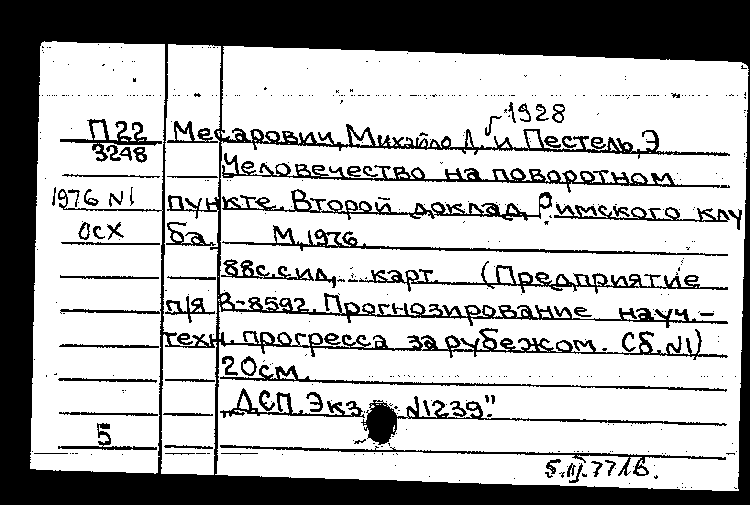 1928
П22 Месарович, Михайло Д. и Пестель, Э
3248 Человечество на поворотном
1976 N1 пункте. Второй доклад Римского клу
ОСХ ба. М, 1976.
88с. сил, карт (Предприятие
п/я В-8592. Прогнозирование науч.-
техн. прогресса за рубежом. Сб. N1)
20см.
„ДСП. Экз N1239."
5
5.III.77